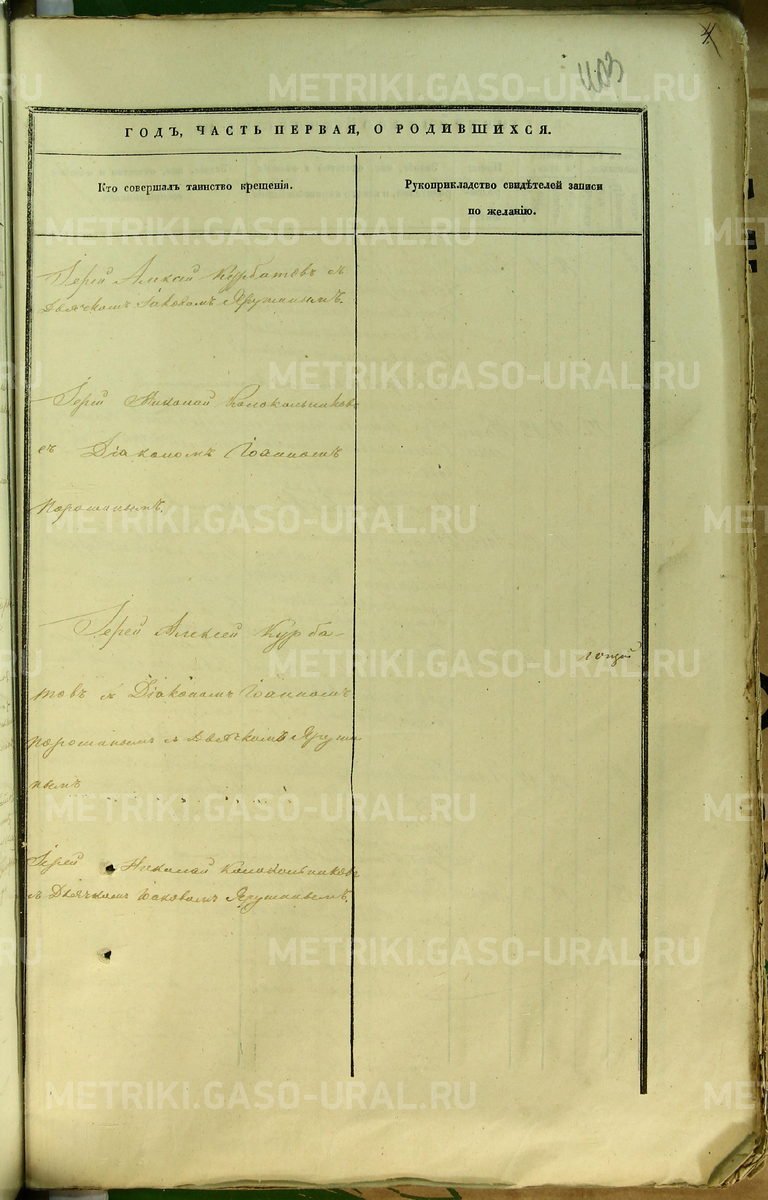 4
403
ГОДЪ, ЧАСТЬ ПЕРВАЯ, О РОДИВШИХСЯ.
Кто совершалъ таинство крещенія.
Рукоприкладство свидѣтелей записи
по желанію.
Іерей Алексѣй Курбатовъ съ
Дьячкомъ Іаковомъ Ярутинымъ.
Іерей Николай Колокольниковъ
съ Діакономъ Іоанномъ
Порошинымъ.
Іерей Алексѣй Курба-
товъ съ Діакономъ Іоанномъ
Порошинымъ и Дьячкомъ Ярути
нымъ
Іерей Николай Колокольниковъ
съ Дьячкомъ Іаковомъ Ярутинымъ.
METRIKI.GASO-URAL.RU